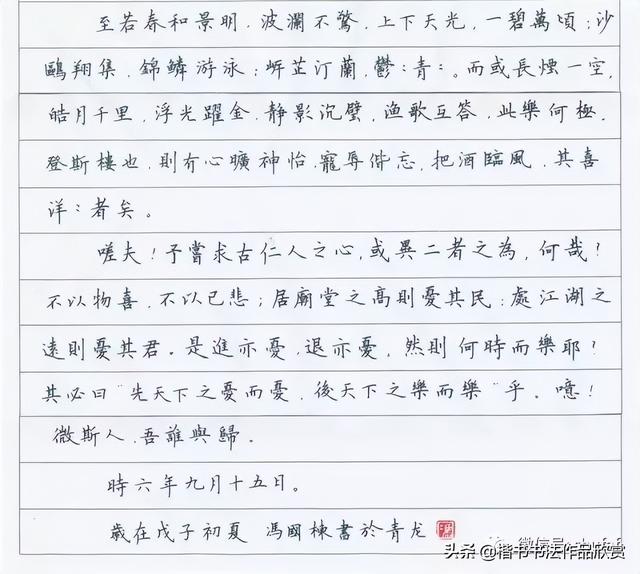 至若春和景明，波瀾不驚，上下天光，一碧萬頃；沙
鷗翔集，錦鱗游泳；岍芷汀蘭，鬱：青：。而或長煙一空，
皓月千里，浮光躍金，静影沉璧，渔歌互答，此樂何極，
登斯樓也，則有心曠神怡，寵辱偕忘，把酒臨風，其喜
洋：者矣。
嗟夫！予嘗求古仁人之心，或異二者之為，何哉？
不以物喜，不以己悲；居廟堂之高則憂其民；處江湖之
遠則憂其君。是進亦憂，退亦憂，然則何時而樂耶？
其必曰“先天下之憂而憂，後天下之樂而樂”乎。噫！
微斯人，吾誰與歸。
時六年九月十五日。
歲在戊子初夏 馮國棟書於青龙
微信号:
头条 @楷书书法作品欣赏